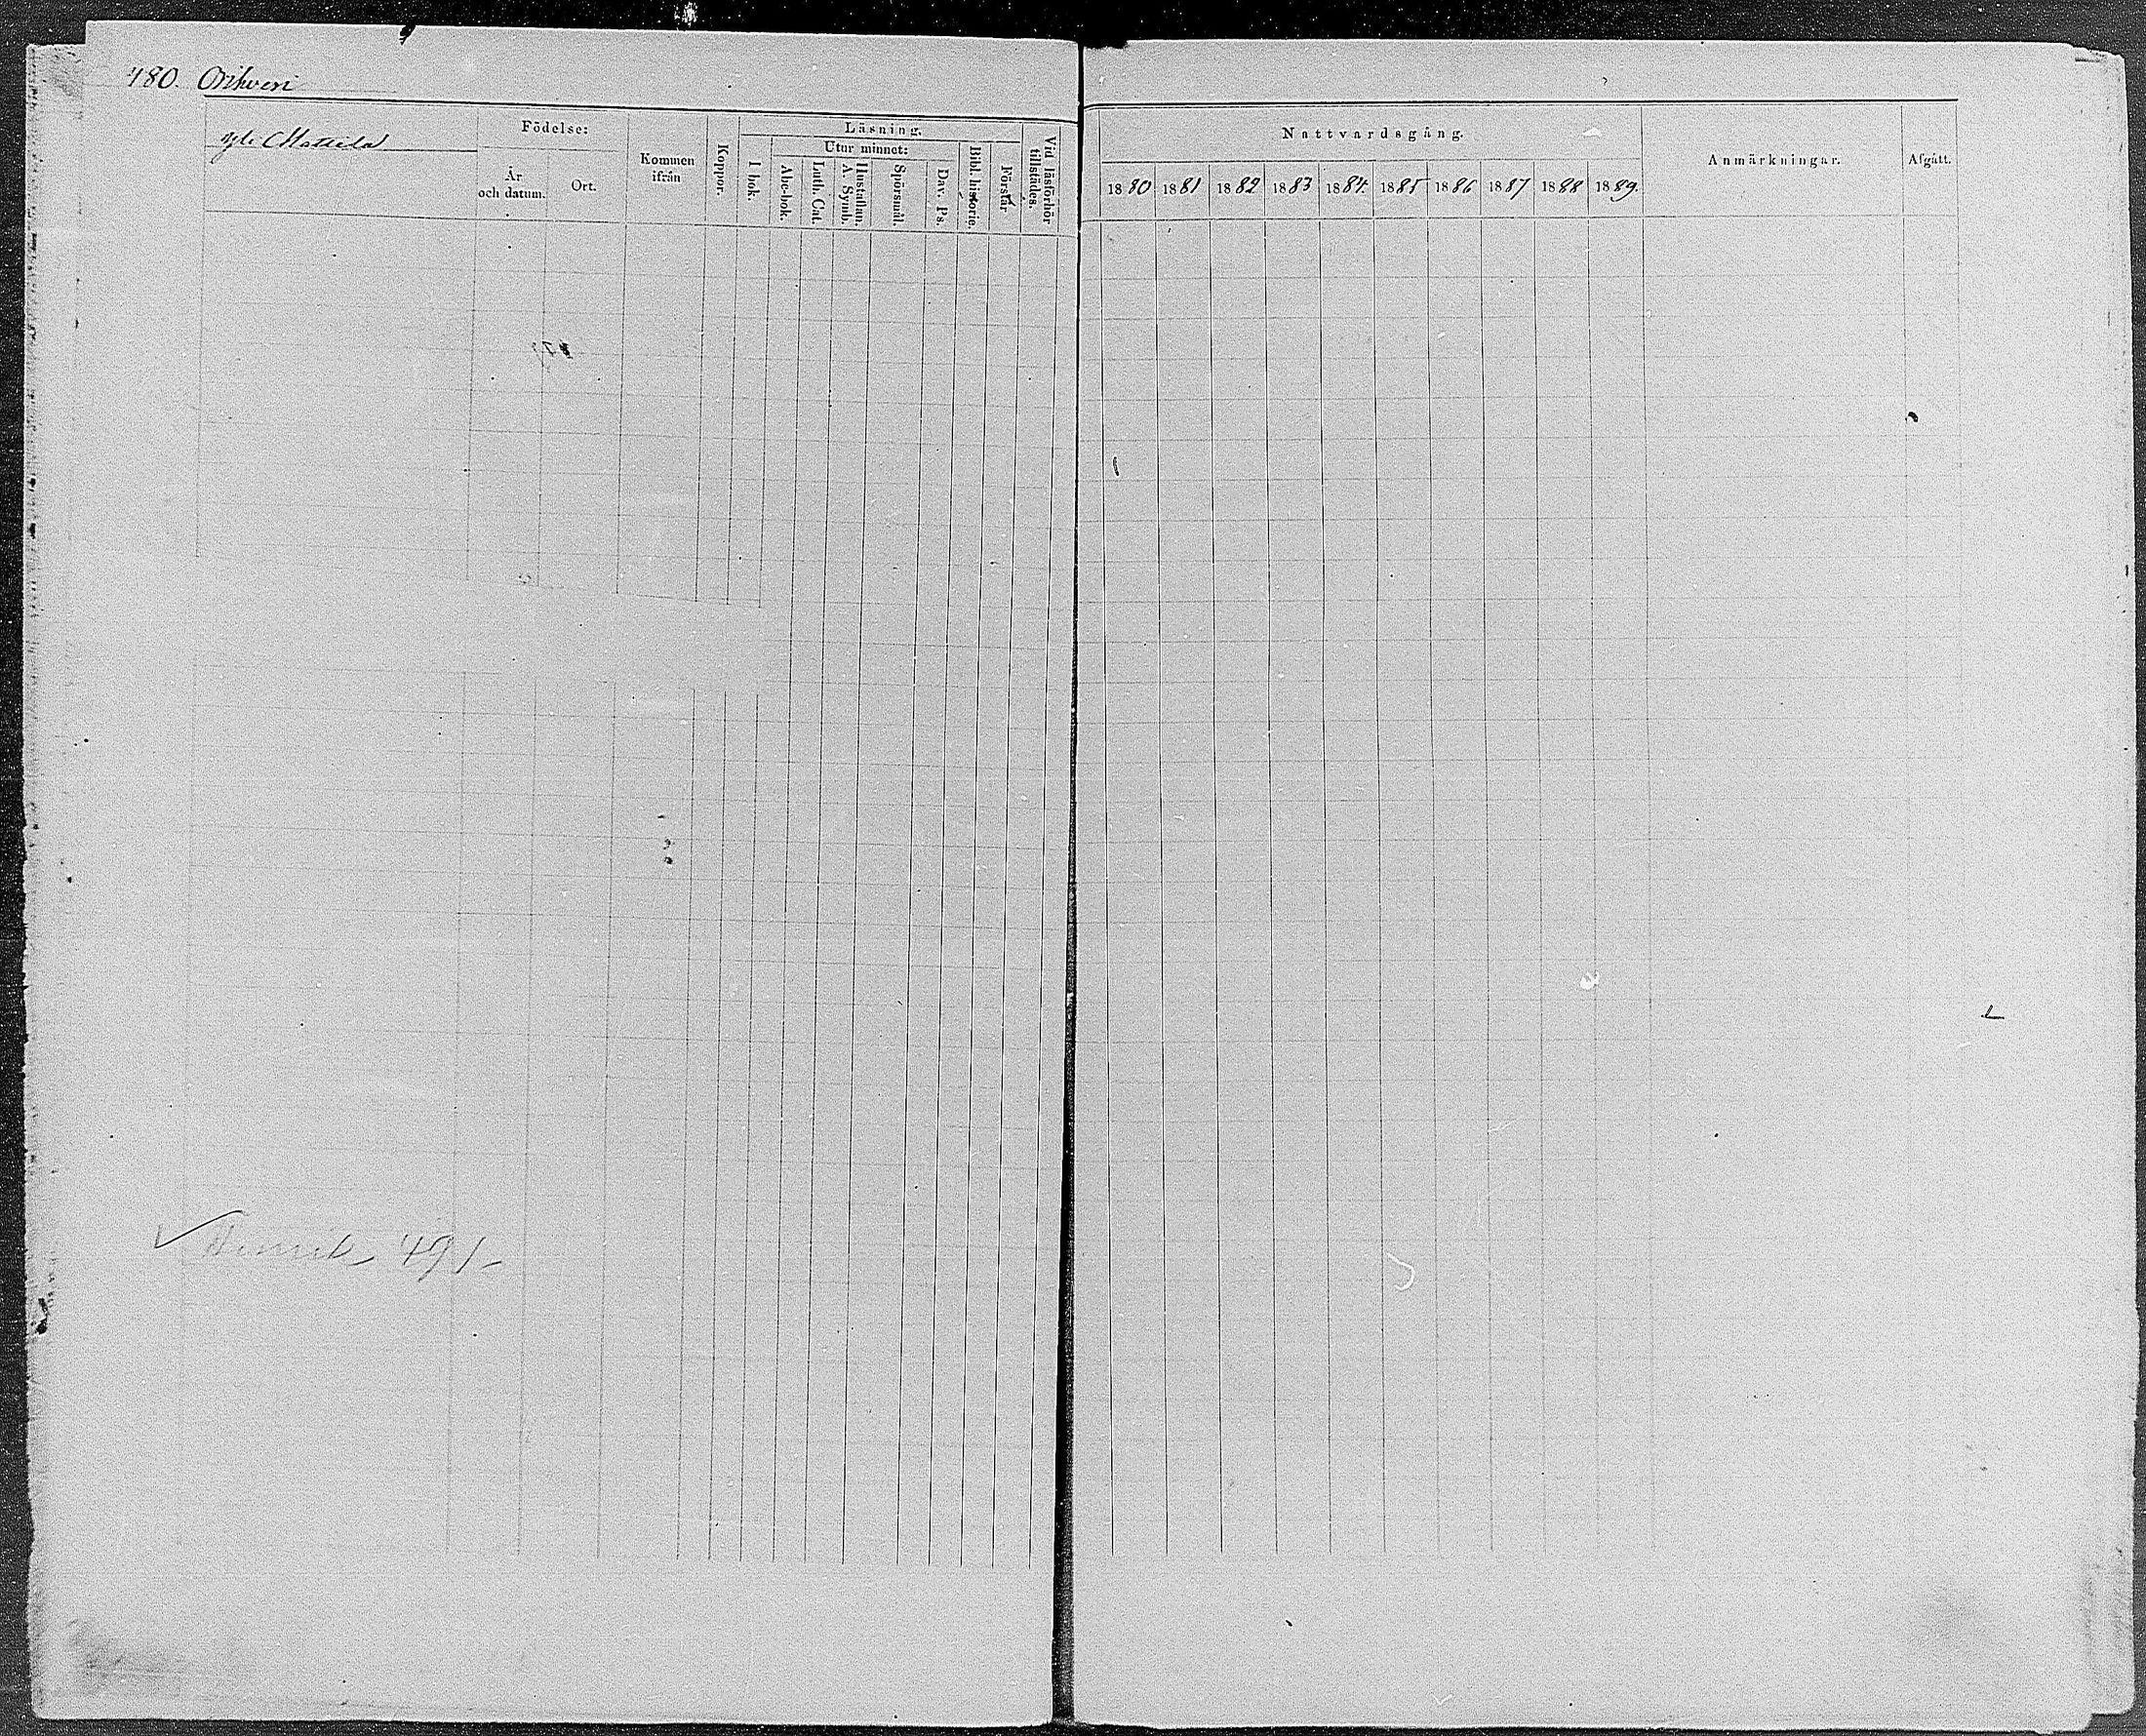 480. Orihveri
Mattila
Födelse:
År och datum.
Ort.
Kommen ifrån
Koppor.
Läsning.
I bok.
Utur minnet:
Abc-bok.
Luth. Cat.
Hustaflan. A. Symb.
Spörsmål.
Dav. Ps.
Bibl. historie.
Förstår
Vid läsförhör tillstädes.
Nattvardsgång.
1880 1881 1882 1883 1884. 1885 1886 1887 1888 1889.
Anmärkningar.
Afgått.
491